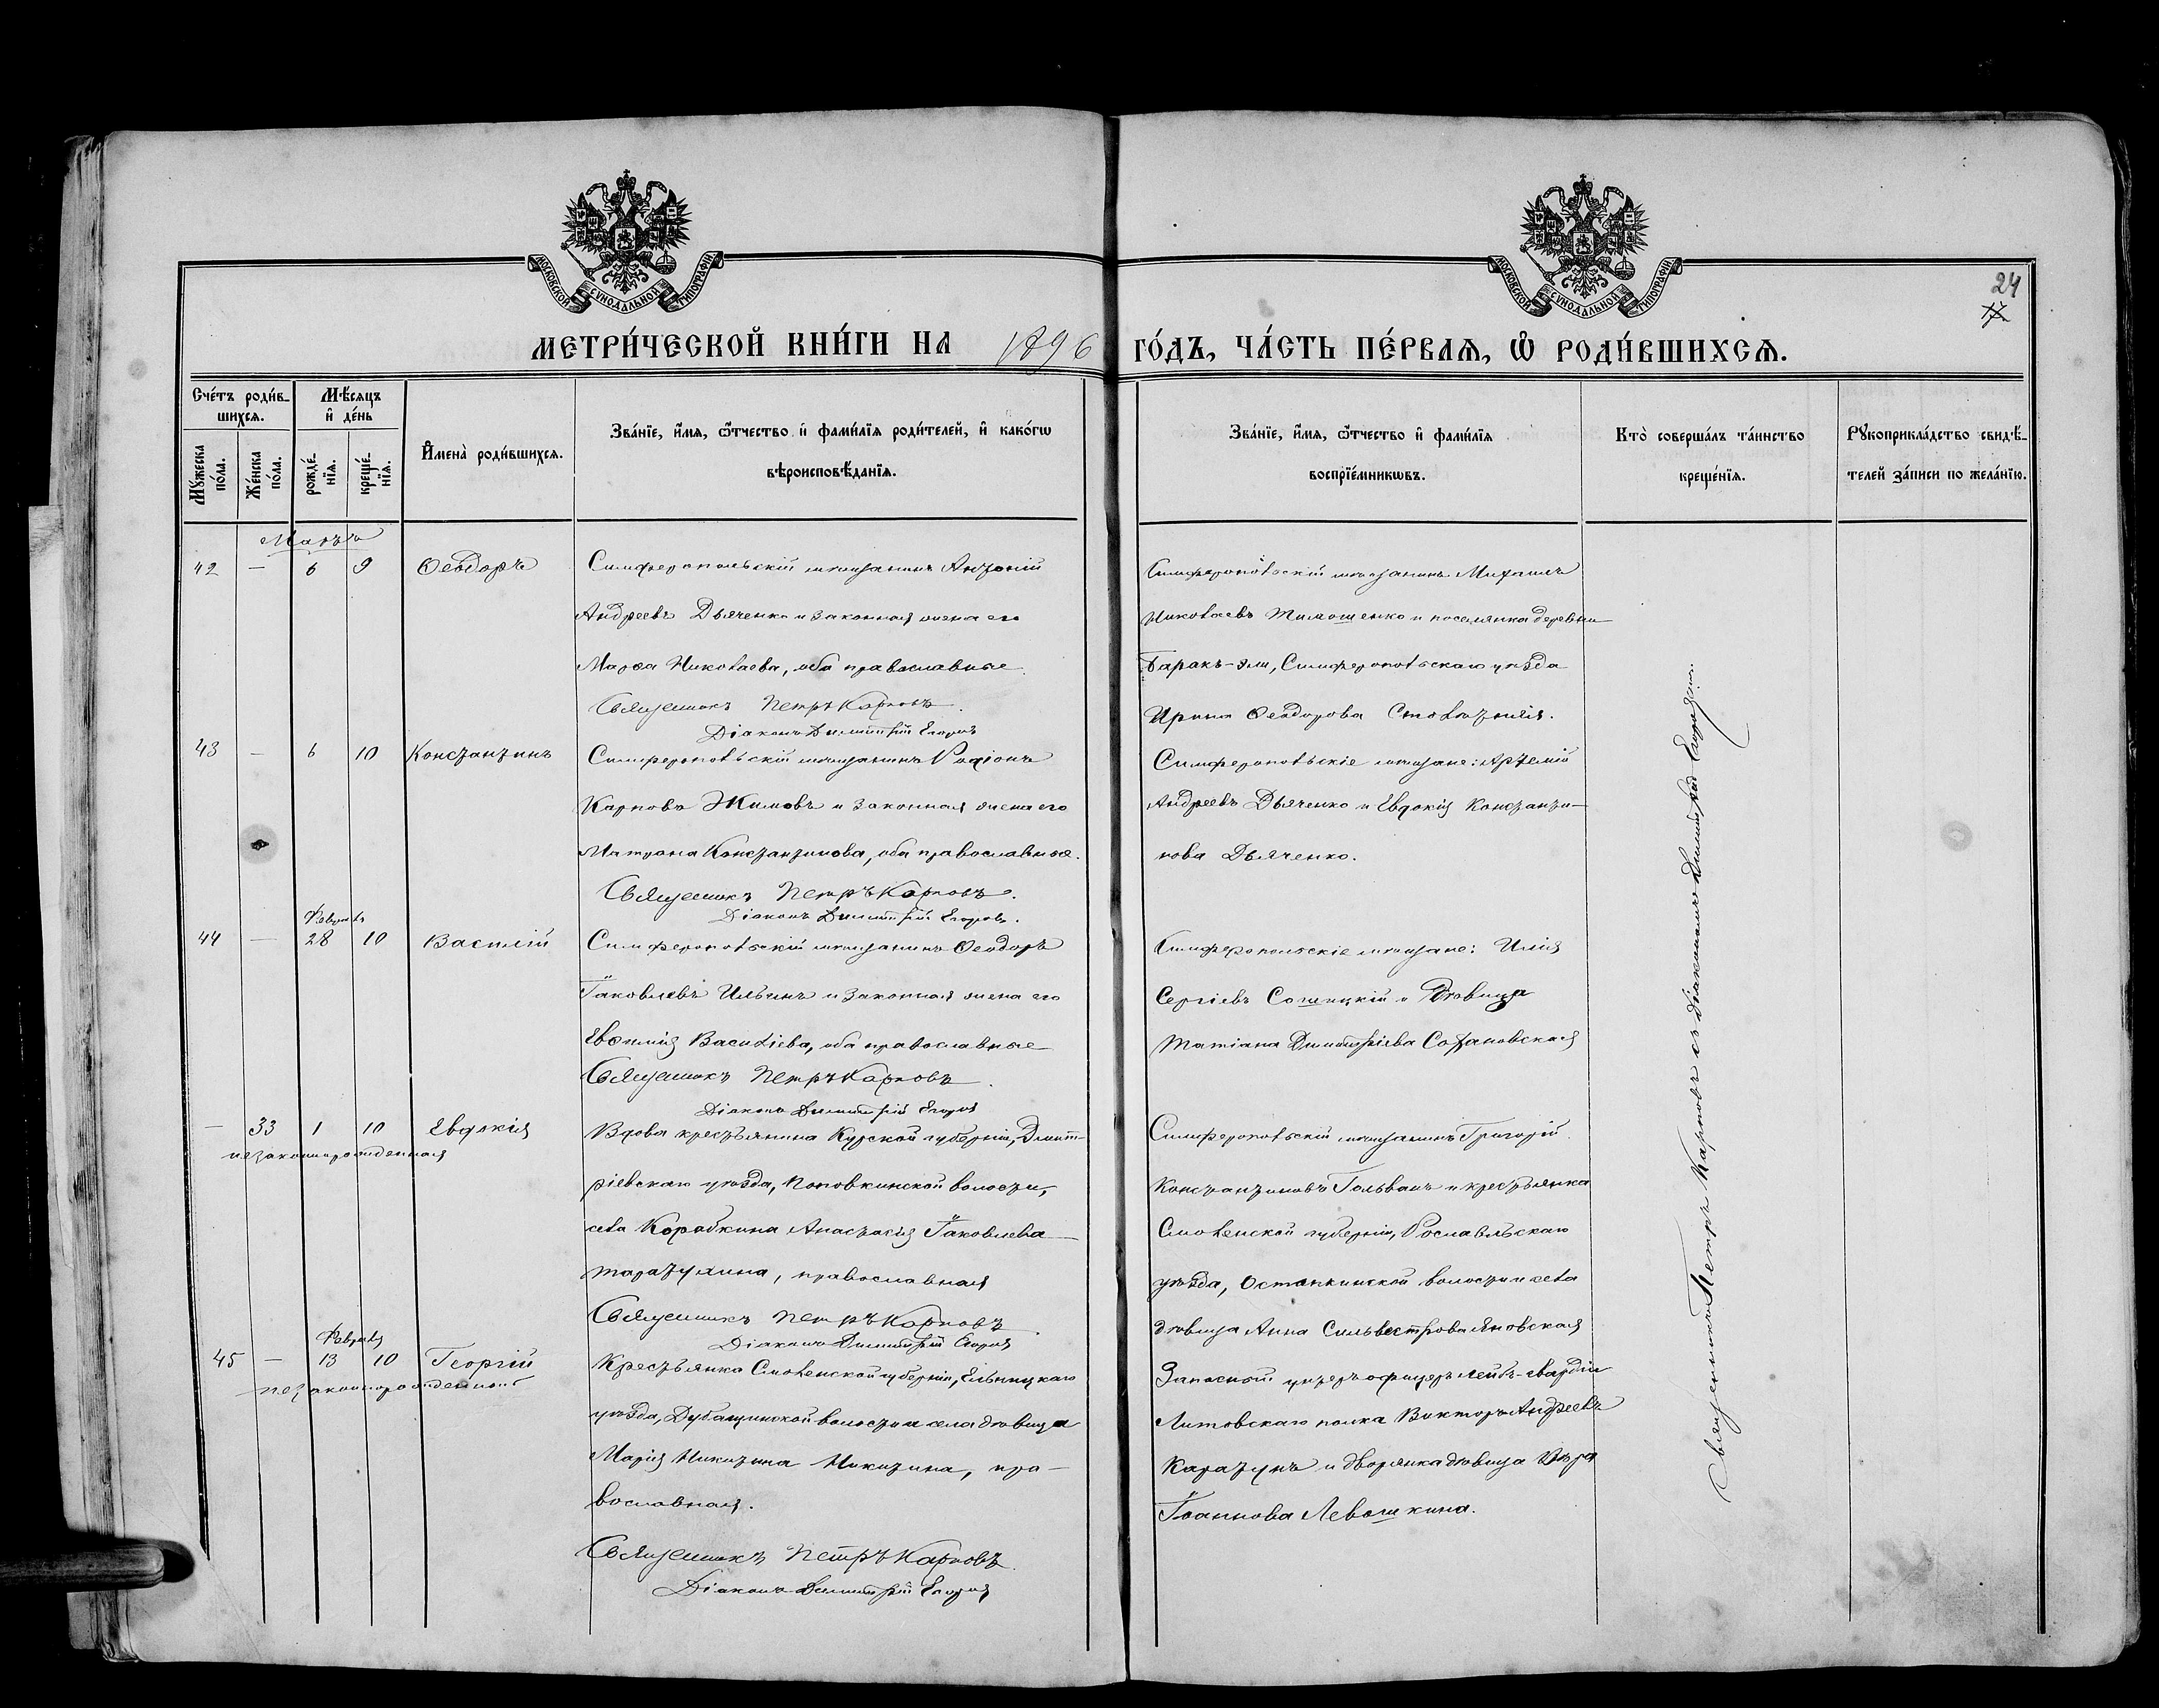 МОСКОВСКОЙ СѴНОДАЛЬНОЙ ТИПОГРАФІИ
МОСКОВСКОЙ СѴНОДАЛЬНОЙ ТИПОГРАФІИ
24
17
МЕТРИ́ЧЕСКОЙ КНИ́ГИ НА 1896 ГО́ДЪ, ЧА́СТЬ ПЕ́РВАѦ, Ѡ҆ РОДИ́ВШИХСѦ.
Сче́тъ роди́вшихсѧ.
Мѣ́сѧцъ и҆ де́нь
Мꙋ́жеска по́ла.
Же́нска по́ла.
рожде́нїѧ.
креще́нїѧ.
И҆мена̀ роди́вшихсѧ.
Зва́нїе, и҆́мѧ, ѻ҆́тчество и҆ фами́лїѧ роди́телей, и҆ како́гѡ
вѣроисповѣ́данїѧ.
Зва́нїе, и҆́мѧ, ѻ҆́тчество и҆ фами́лїѧ
воспрїе́мникѡвъ.
Кто̀ соверша́лъ та́инство
креще́нїѧ.
Рꙋкоприкла́дство свидѣ́-
телей за́писи по жела́нїю.
Мартъ
42 — 6 9 Ѳеодоръ
Симферопольскій мѣщанинъ Антоній
Андреевъ Дьяченко и законная жена его
Марѳа Николаева, оба православные
Священникъ Петръ Карповъ.
Діаконъ Димитрій Егоровъ
Симферопольскій мѣщанинъ Михаилъ
Николаевъ Тимошенко и поселянка деревни
Баракъ-эли, Симферопольскаго уѣзда
Ирина Ѳеодорова
43 — 6 10 Константинъ
Симферопольскій мѣщанинъ Родіонъ
Карповъ Жимовъ и законная жена его
Матрона Константинова, оба православные.
Священникъ Петръ Карповъ.
Діаконъ Димитрій Егоровъ.
Симферопольскіе мѣщане: Артемій
Андреевъ Дьяченко и Евдокія Константи-
нова Дьяченко.
Февраля
44 — 28 10 Василій
Симферопольскій мѣщанинъ Ѳеодоръ
Іаковлевъ Ильинъ и законная жена его
Евѳимія Василіева, оба православные
Священникъ Петръ Карповъ.
Діаконъ Димитрій Егоровъ
Симферопольскіе мѣщане: Илія
Сергіевъ и дѣвица
Татіана Димитріева
— 33 1 10 Евдокія
незаконнорожденная
Вдова крестьянина Курской губерніи, Дмит-
ріевскаго уѣзда, Поповкинской волости,
села Коробкина Анастасія Іаковлева
православная
Священникъ Петръ Карповъ.
Діаконъ Димитрій Егоровъ
Симферопольскій мѣщанинъ Григорій
Константиновъ Гольванъ и крестьянка
Смоленской губерніи, Рославльскаго
уѣзда, Остапкинской волости и села
дѣвица Анна Сильвестрова Яновская
Февраля
45 — 13 10 Георгій
незаконнорожденный
Крестьянка Смоленской губерніи, Ельницкаго
уѣзда, волости и села дѣвица
Марія Никитина Никитина, пра-
вославная.
Священникъ Петръ Карповъ.
Діаконъ Димитрій Егоровъ
Запасной унтеръ офицеръ Лейбъ-гвардіи
Литовскаго полка Викторъ Андреевъ
Каратунъ и дворянка дѣвица Вѣра
Іоаннова Левошкина.
Священникъ Петръ Карповъ съ діакономъ Димитріемъ